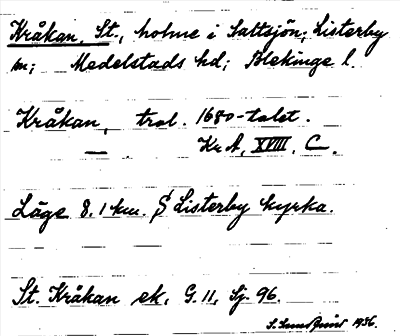 Kråkan, St., holme i Saltsjön; Listerby
sn; Medelstads hd; Blekinge l.
Kråkan, trol. 1680-talet.
Kr A, XVIII, C.
Läge 8.1 km. S Listerby kyrka.
St. Kråkan ek, G. 11, Sj. 96.
1936.